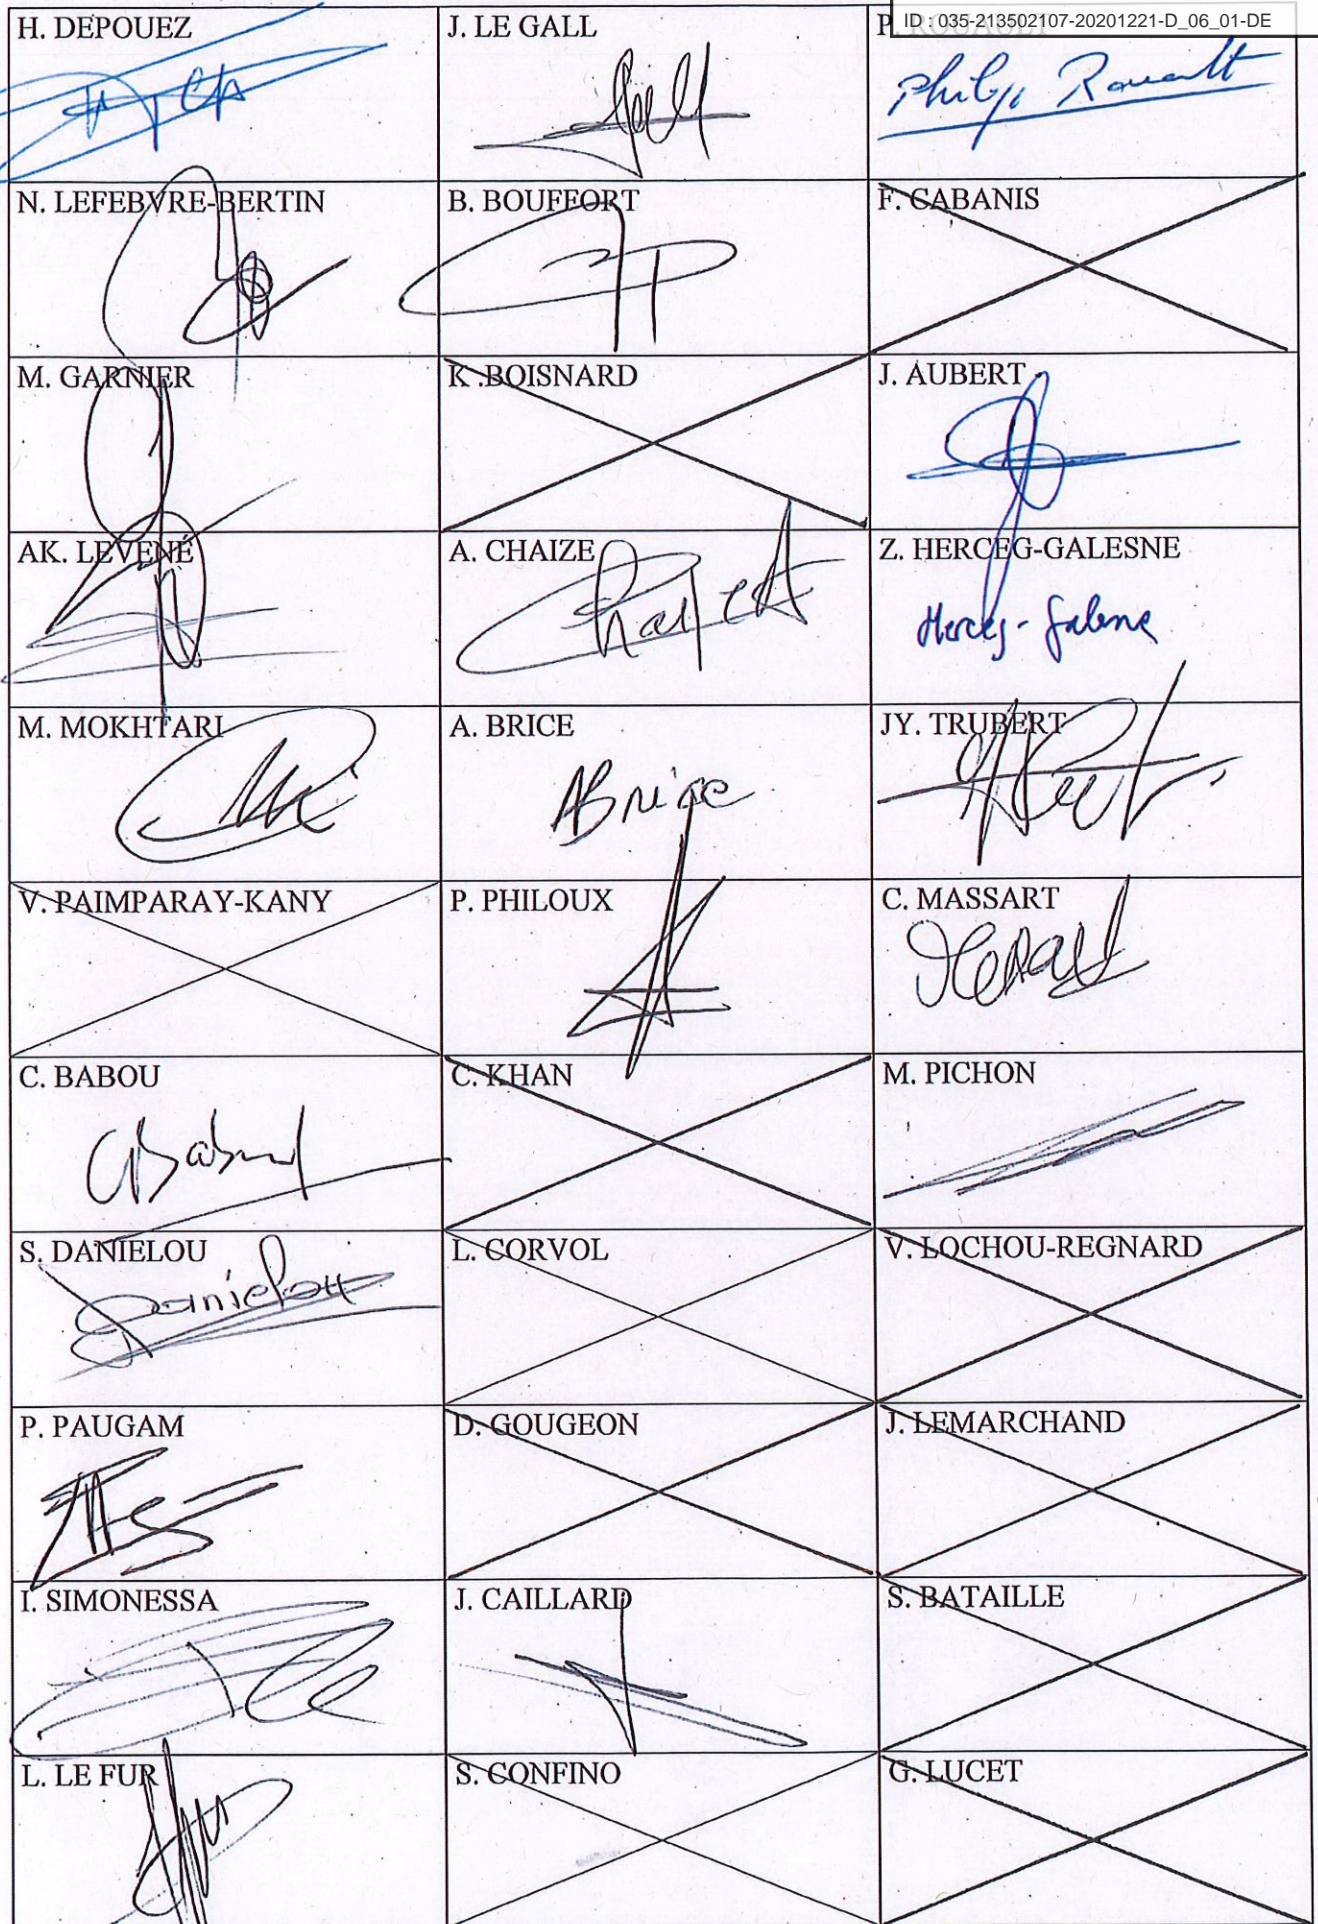 ID : 035-213502107-20201221-D_06_01-DE
H. DEPOUEZ
J. LE GALL
P. ROUAULT
Philip Rouault
N. LEFEBVRE-BERTIN
B. BOUFFORT
F. CABANIS
M. GARNIER
K .BOISNARD
J. AUBERT
AK. LEVENÉ
A. CHAIZE
Z. HERCEG-GALESNE
Herceg-Galesne
M. MOKHTARI
A. BRICE
JY. TRUBERT
ABrice
V. PAIMPARAY-KANY
P. PHILOUX
C. MASSART
C. BABOU
C. KHAN
M. PICHON
CBabou
S. DANIELOU
L. CORVOL
V. LOCHOU-REGNARD
Danielou
P. PAUGAM
D. GOUGEON
J. LEMARCHAND
I. SIMONESSA
J. CAILLARD
S. BATAILLE
L. LE FUR
S. CONFINO
G. LUCET